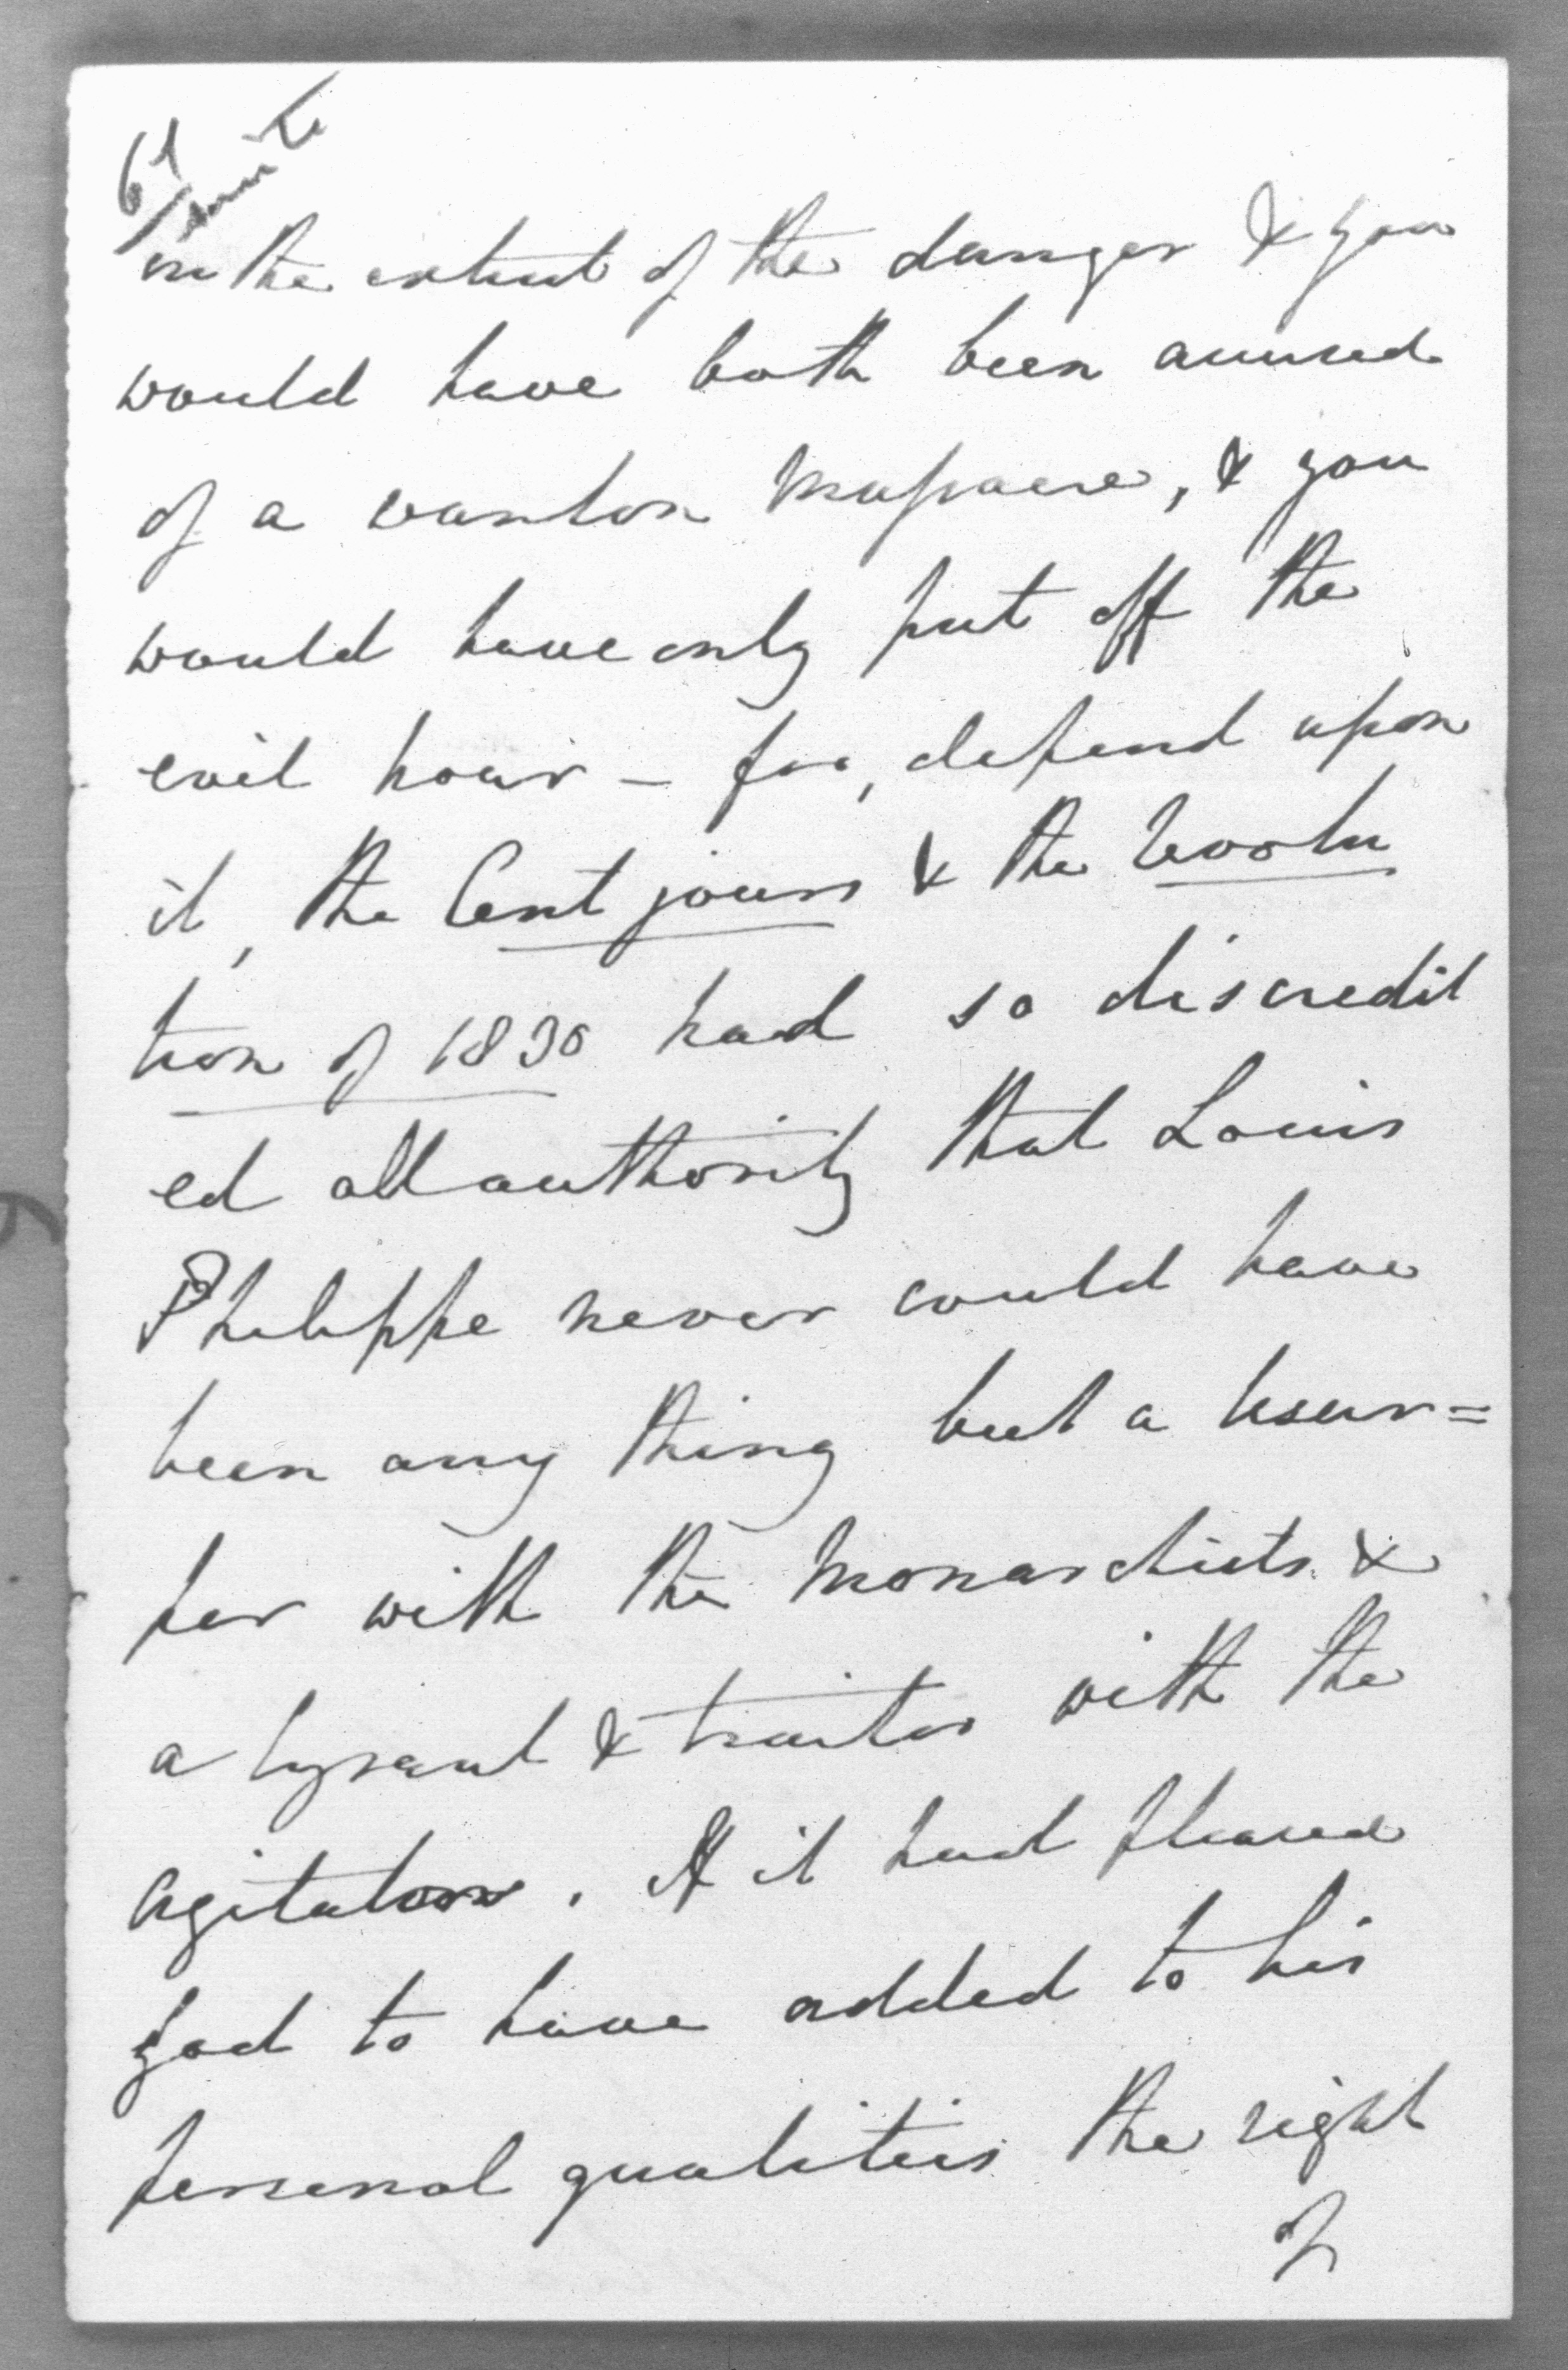 61
suite
in the extent of the danger & you
would have both been accused
of a wanton massacre, & you
would have only put off the
evil hour – for, depend upon
it, the Cent jours & the Revolu
tion of 1830 had so discredit
ed all authority that Louis
Philippe never could have
been any thing but a Usur=
per with the Monarchists &
a tyrant & traitor with the
Agitators. If it had pleased
God to have added to his
personal qualities the right
of